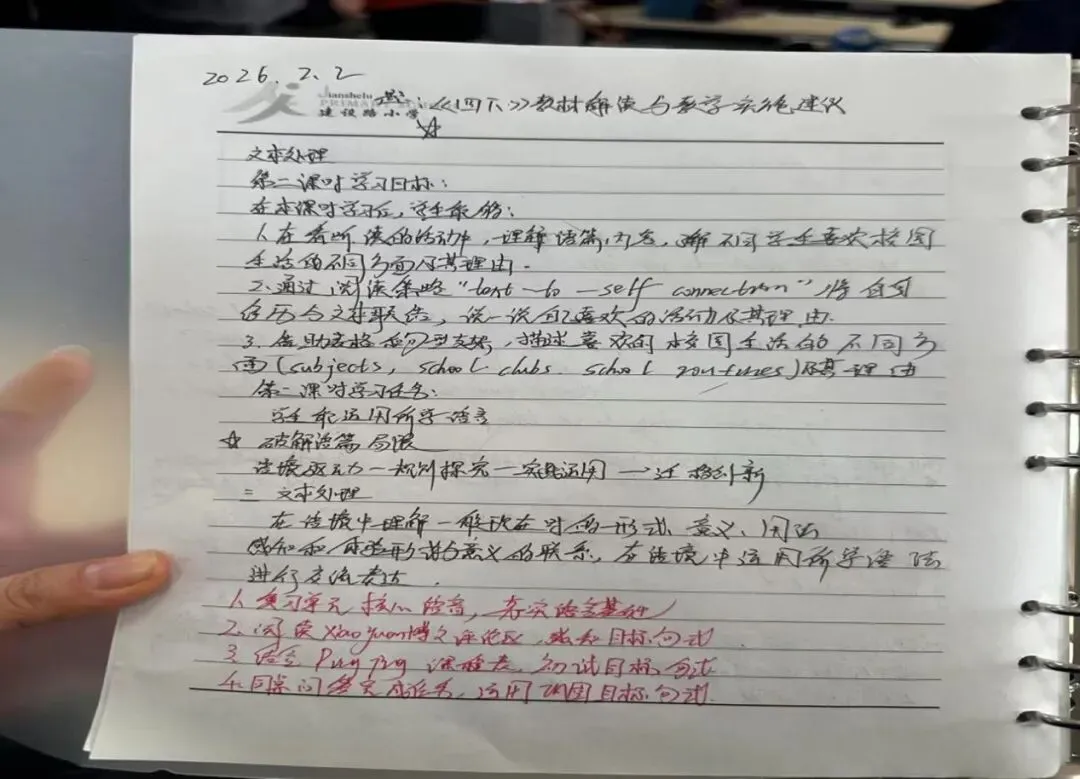 2026.2.2
Jianshelu
PRIMARY
建设路小学
《四下》教材解读与教学实施建议
文本处理
第二课时学习目标：
在本课时学习后，学生能够：
1.在看听读的活动中，理解语篇内容，了解不同学生喜欢校园
生活的不同方面及其理由.
2.通过阅读策略"text-to-self connection"，将自身
经历与文本联结，说一说自己喜欢的活动及其理由.
3.借助表格 支架，描述喜欢的校园生活的不同方
面(subjects, school clubs, school routines)及其理由
第二课时学习任务：
学生能运用所学语言
☆ 破解语篇局限
语境驱动—规则探究—实践运用—迁移创新
二 文本处理
在语境中理解一般现在时的形式、意义、用法
感知和体验形式与意义的联系，在语境中运用所学语法
进行交流表达.
1.复习单元核心语言，夯实语言基础
2.阅读Xiaoyuan博文评论区，感知目标句式
3.结合Pingping课程表，初试目标句式
4.同桌问答完成任务，运用巩固目标句式.